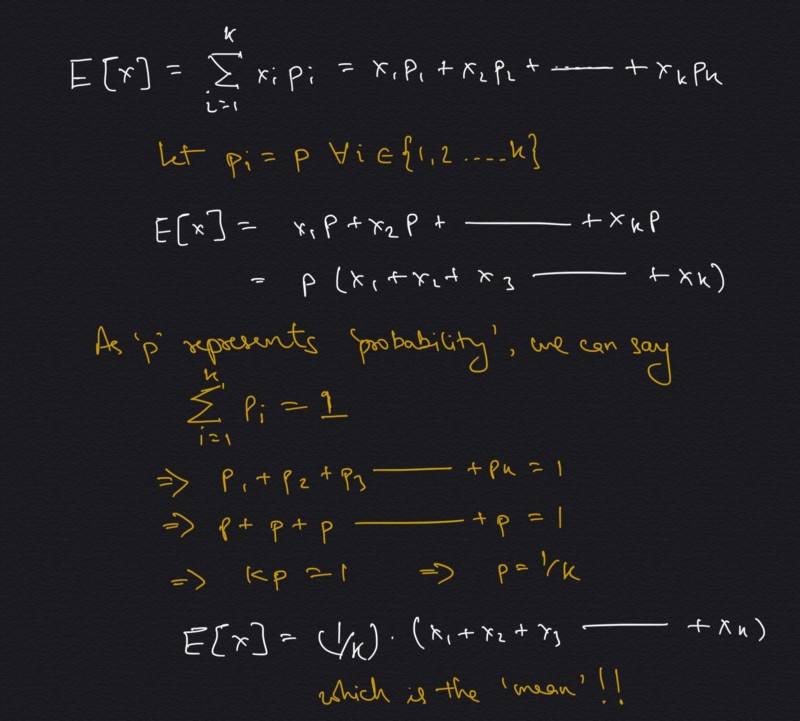 E[x] = k ∑ i=1 xᵢ pᵢ = x₁p₁ + x₂p₂ + ...... —— + xₖpₖ
Let pᵢ = p ∀ i ∈ {1,2 .....k}
E[x] = x₁p + x₂p + ——— + xₖp
= p (x₁ + x₂ + x₃ ——— + xₖ)
As 'p' represents 'probability', we can say
k ∑ i=1 pᵢ = 1
=> p₁ + p₂ + p₃ ——— + pₖ = 1
=> p + p + p ——— + p = 1
=> kp = 1 => p = 1/k
E[x] = (1/k) . (x₁ + x₂ + x₃ ——— + xₖ)
which is the 'mean' !!